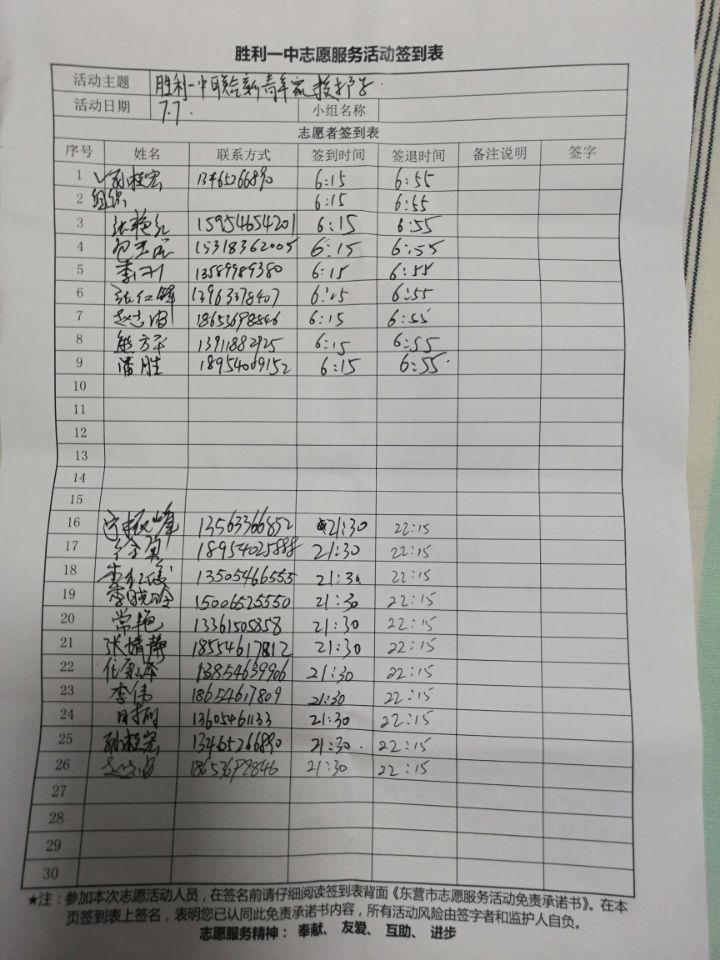 胜利一中志愿服务活动签到表
活动主题 胜利一中联合新青年家
活动日期 7.7. 小组名称
志愿者签到表
序号 姓名 联系方式 签到时间 签退时间 备注说明 签字
1 孙桂宏 13465266890 6:15 6:55
2 组织 6:15 6:55
3 张艳红 15954654201 6:15 6:55
4 15318362005 6:15 6:55
5 李 13589989380 6:15 6:55
6 张仁峰 13963378407 6:15 6:55
7 赵志海 18653698846 6:15 6:55
8 熊方军 13911882925 6:15 6:55
9 潘胜 18954009152 6:15 6:55
10
11
12
13
14
15
16 13563366852 21:30 22:15
17 18954025888 21:30 22:15
18 李红霞 13505466555 21:30 22:15
19 李晓玲 15006525550 21:30 22:15
20 常艳 13361505858 21:30 22:15
21 张婧静 18554617812 21:30 22:15
22 13854639906 21:30 22:15
23 李伟 18654617809 21:30 22:15
24 13605461133 21:30 22:15
25 孙桂宏 13465266890 21:30 22:15
26 21:30 22:15
27
28
29
30
★注：参加本次志愿活动人员，在签名前请仔细阅读签到表背面《东营市志愿服务活动免责承诺书》。在本
页签到表上签名，表明您已认同此免责承诺书内容，所有活动风险由签字者和监护人自负。
志愿服务精神： 奉献、 友爱、 互助、 进步